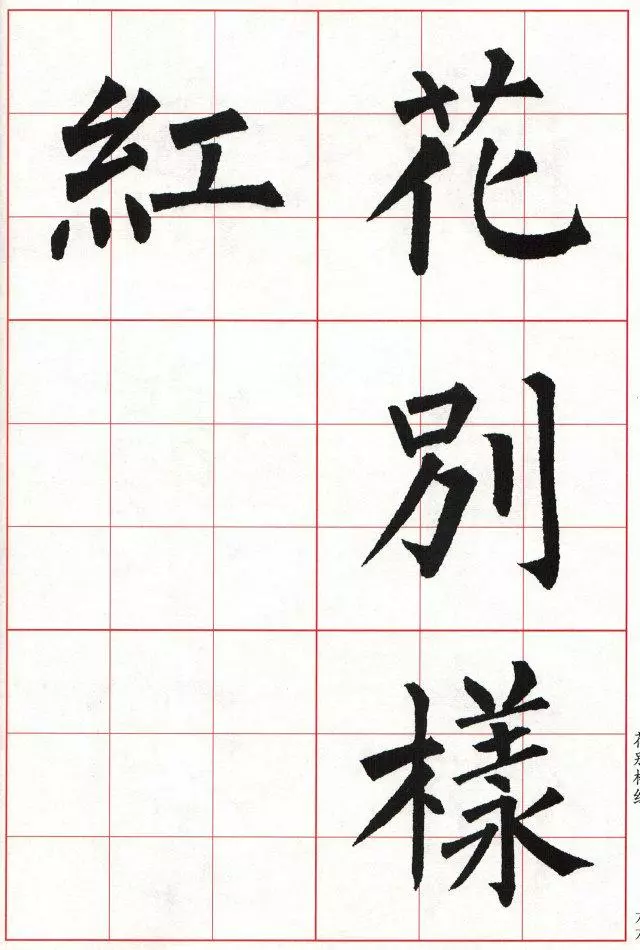 花別樣
紅